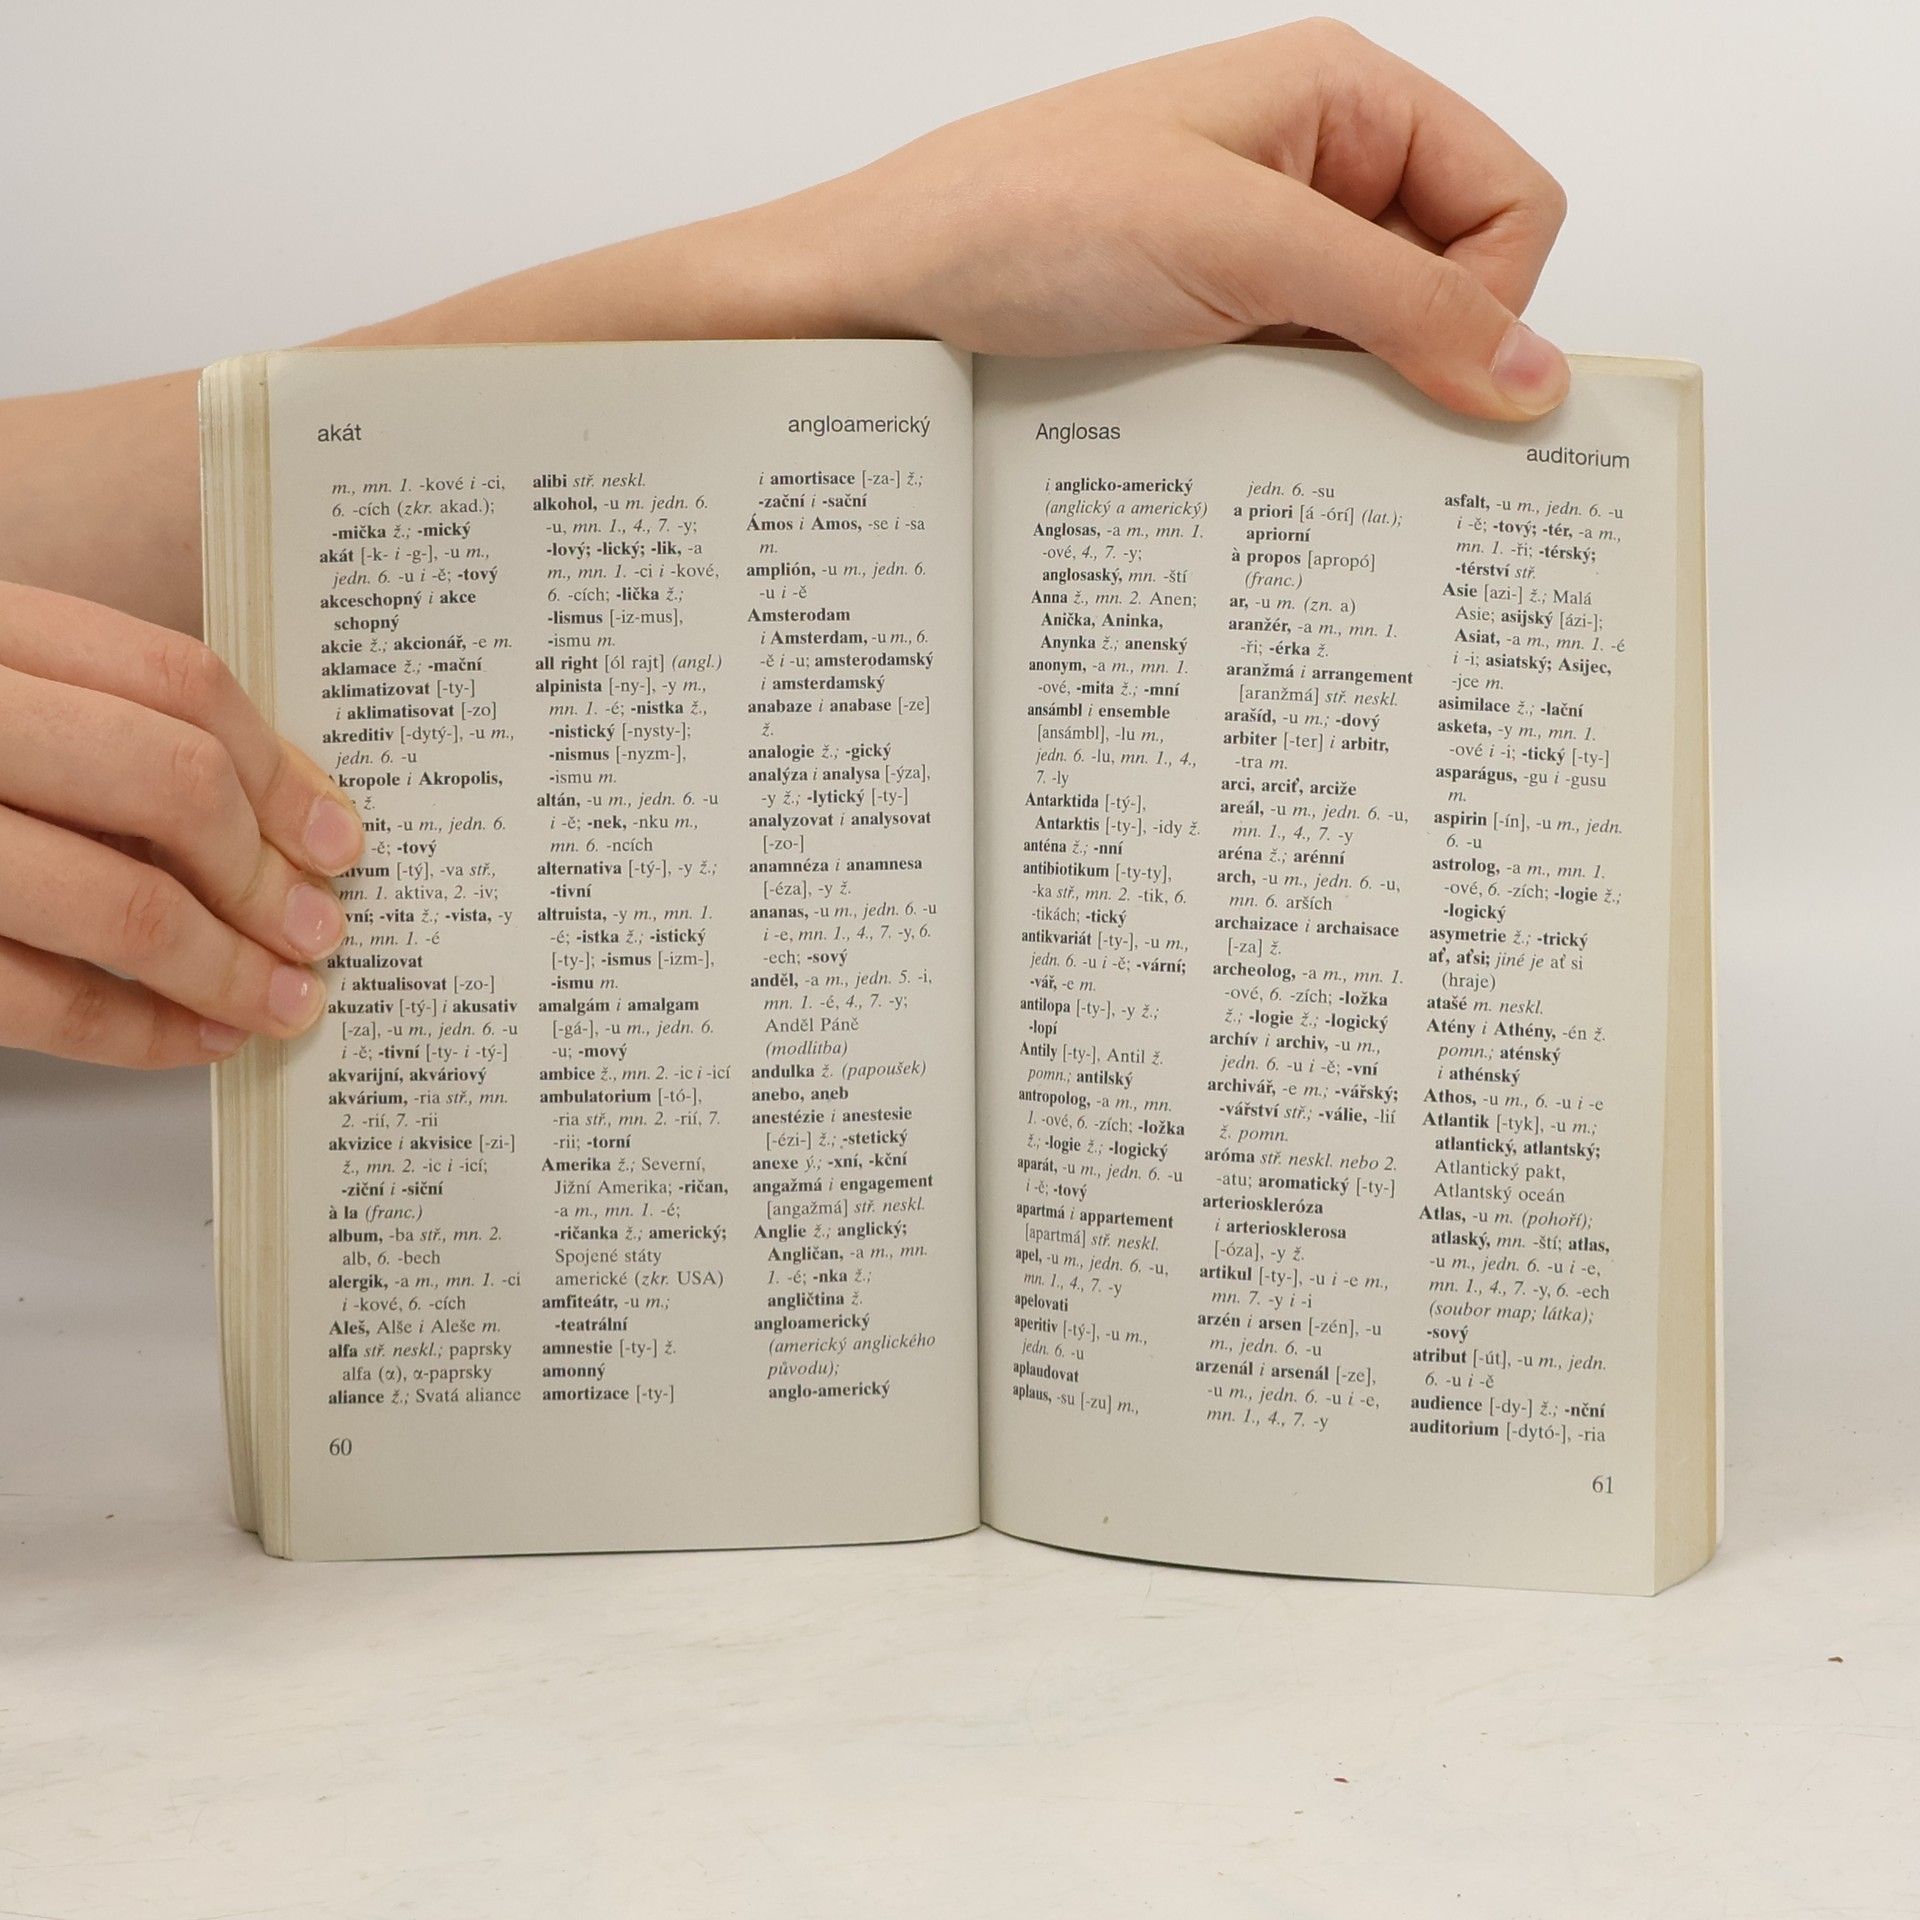 akát
angloamerický
m., mn. 1. -kové i -ci,
6. -cích (zkr. akad.);
-mička ž.; -mický
akát [-k- i -g-], -u m.,
jedn. 6. -u i -ě; -tový
akceschopný i akce
schopný
akcie ž.; akcionář, -e m.
aklamace ž.; -mační
aklimatizovat [-ty-]
i aklimatisovat [-zo]
akreditiv [-dytý-], -u m.,
jedn. 6. -u
kropole i Akropolis,
ž.
mit, -u m., jedn. 6.
-ě; -tový
ivum [-tý], -va stř.,
mn. 1. aktiva, 2. -iv;
vní; -vita ž.; -vista, -y
m., mn. 1. -é
aktualizovat
i aktualisovat [-zo-]
akuzativ [-tý-] i akusativ
[-za], -u m., jedn. 6. -u
i -ě; -tivní [-ty- i -tý-]
akvarijní, akváriový
akvárium, -ria stř., mn.
2. -rií, 7. -rii
akvizice i akvisice [-zi-]
ž., mn. 2. -ic i -icí;
-ziční i -siční
à la (franc.)
album, -ba stř., mn. 2.
alb, 6. -bech
alergik, -a m., mn. 1. -ci
i -kové, 6. -cích
Aleš, Alše i Aleše m.
alfa stř. neskl.; paprsky
alfa (α), α-paprsky
aliance ž.; Svatá aliance
alibi stř. neskl.
alkohol, -u m. jedn. 6.
-u, mn. 1., 4., 7. -y;
-lový; -lický; -lik, -a
m., mn. 1. -ci i -kové,
6. -cích; -lička ž.;
-lismus [-iz-mus],
-ismu m.
all right [ól rajt] (angl.)
alpinista [-ny-], -y m.,
mn. 1. -é; -nistka ž.,
-nistický [-nysty-];
-nismus [-nyzm-],
-ismu m.
altán, -u m., jedn. 6. -u
i -ě; -nek, -nku m.,
mn. 6. -ncích
alternativa [-tý-], -y ž.;
-tivní
altruista, -y m., mn. 1.
-é; -istka ž.; -istický
[-ty-]; -ismus [-izm-],
-ismu m.
amalgám i amalgam
[-gá-], -u m., jedn. 6.
-u; -mový
ambice ž., mn. 2. -ic i -icí
ambulatorium [-tó-],
-ria stř., mn. 2. -rií, 7.
-rii; -torní
Amerika ž.; Severní,
Jižní Amerika; -ričan,
-a m., mn. 1. -é;
-ričanka ž.; americký;
Spojené státy
americké (zkr. USA)
amfiteátr, -u m.;
-teatrální
amnestie [-ty-] ž.
amonný
amortizace [-ty-]
i amortisace [-za-] ž.;
-zační i -sační
Ámos i Amos, -se i -sa
m.
amplión, -u m., jedn. 6.
-u i -ě
Amsterodam
i Amsterdam, -u m., 6.
-ě i -u; amsterodamský
i amsterdamský
anabaze i anabase [-ze]
ž.
analogie ž.; -gický
analýza i analysa [-ýza],
-y ž.; -lytický [-ty-]
analyzovat i analysovat
[-zo-]
anamnéza i anamnesa
[-éza], -y ž.
ananas, -u m., jedn. 6. -u
i -e, mn. 1., 4., 7. -y, 6.
-ech; -sový
anděl, -a m., jedn. 5. -i,
mn. 1. -é, 4., 7. -y;
Anděl Páně
(modlitba)
andulka ž. (papoušek)
anebo, aneb
anestézie i anestesie
[-ézi-] ž.; -stetický
anexe ý.; -xní, -kční
angažmá i engagement
[angažmá] stř. neskl.
Anglie ž.; anglický;
Angličan, -a m., mn.
1. -é; -nka ž.;
angličtina ž.
angloamerický
(americký anglického
původu);
anglo-americký
60
Anglosas
auditorium
i anglicko-americký
(anglický a americký)
Anglosas, -a m., mn. 1.
-ové, 4., 7. -y;
anglosaský, mn. -ští
Anna ž., mn. 2. Anen;
Anička, Aninka,
Anynka ž.; anenský
anonym, -a m., mn. 1.
-ové, -mita ž.; -mní
ansámbl i ensemble
[ansámbl], -lu m.,
jedn. 6. -lu, mn. 1., 4.,
7. -ly
Antarktida [-tý-],
Antarktis [-ty-], -idy ž.
anténa ž.; -nní
antibiotikum [-ty-ty],
-ka stř., mn. 2. -tik, 6.
-tikách; -tický
antikvariát [-ty-], -u m.,
jedn. 6. -u i -ě; -vární;
-vář, -e m.
antilopa [-ty-], -y ž.;
-lopí
Antily [-ty-], Antil ž.
pomn.; antilský
antropolog, -a m., mn.
1. -ové, 6. -zích; -ložka
ž.; -logie ž.; -logický
aparát, -u m., jedn. 6. -u
i -ě; -tový
apartmá i appartement
[apartmá] stř. neskl.
apel, -u m., jedn. 6. -u,
mn. 1., 4., 7. -y
apelovati
aperitiv [-tý-], -u m.,
jedn. 6. -u
aplaudovat
aplaus, -su [-zu] m.,
jedn. 6. -su
a priori [á -órí] (lat.);
apriorní
à propos [apropó]
(franc.)
ar, -u m. (zn. a)
aranžér, -a m., mn. 1.
-ři; -érka ž.
aranžmá i arrangement
[aranžmá] stř. neskl.
arašíd, -u m.; -dový
arbiter [-ter] i arbitr,
-tra m.
arci, arciť, arciže
areál, -u m., jedn. 6. -u,
mn. 1., 4., 7. -y
aréna ž.; arénní
arch, -u m., jedn. 6. -u,
mn. 6. arších
archaizace i archaisace
[-za] ž.
archeolog, -a m., mn. 1.
-ové, 6. -zích; -ložka
ž.; -logie ž.; -logický
archív i archiv, -u m.,
jedn. 6. -u i -ě; -vní
archivář, -e m.; -vářský;
-vářství stř.; -válie, -lií
ž. pomn.
aróma stř. neskl. nebo 2.
-atu; aromatický [-ty-]
arterioskleróza
i arteriosklerosa
[-óza], -y ž.
artikul [-ty-], -u i -e m.,
mn. 7. -y i -i
arzén i arsen [-zén], -u
m., jedn. 6. -u
arzenál i arsenál [-ze],
-u m., jedn. 6. -u i -e,
mn. 1., 4., 7. -y
asfalt, -u m., jedn. 6. -u
i -ě; -tový; -tér, -a m.,
mn. 1. -ři; -térský;
-térství stř.
Asie [azi-] ž.; Malá
Asie; asijský [ázi-];
Asiat, -a m., mn. 1. -é
i -i; asiatský; Asijec,
-jce m.
asimilace ž.; -lační
asketa, -y m., mn. 1.
-ové i -i; -tický [-ty-]
asparágus, -gu i -gusu
m.
aspirin [-ín], -u m., jedn.
6. -u
astrolog, -a m., mn. 1.
-ové, 6. -zích; -logie ž.;
-logický
asymetrie ž.; -trický
ať, aťsi; jiné je ať si
(hraje)
atašé m. neskl.
Atény i Athény, -én ž.
pomn.; aténský
i athénský
Athos, -u m., 6. -u i -e
Atlantik [-tyk], -u m.;
atlantický, atlantský;
Atlantický pakt,
Atlantský oceán
Atlas, -u m. (pohoří);
atlaský, mn. -ští; atlas,
-u m., jedn. 6. -u i -e,
mn. 1., 4., 7. -y, 6. -ech
(soubor map; látka);
-sový
atribut [-út], -u m., jedn.
6. -u i -ě
audience [-dy-] ž.; -nční
auditorium [-dytó-], -ria
61